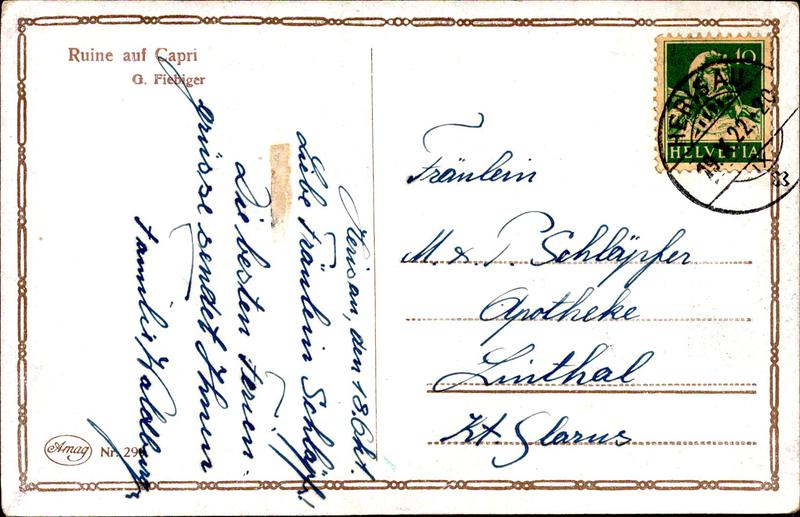 Ruine auf Capri
G. Fiebiger
Herisau, den 18. Okt.
Liebe Fräulein Schläpfer!
Die besten Ferien-
grüsse sendet Ihnen
Familie Waldburger
Amag
Nr. 29
10
HELVETIA
HERISAU
Fräulein
M. & P. Schläpfer
Apotheke
Linthal
Kt Glarus